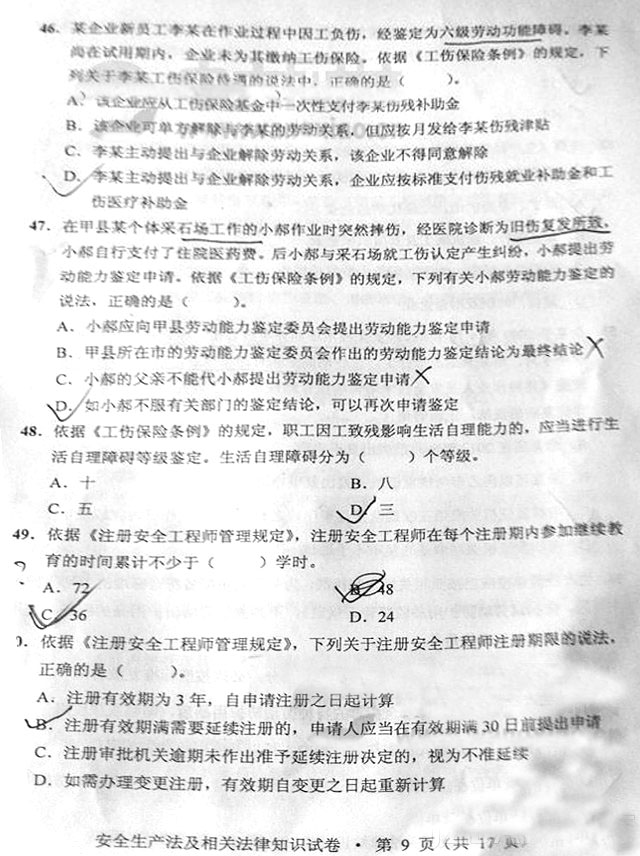 46. 某企业新员工李某在作业过程中因工负伤，经鉴定为六级劳动功能障碍。李某
尚在试用期内，企业未为其缴纳工伤保险。依据《工伤保险条例》的规定，下
列关于李某工伤保险待遇的说法中，正确的是（　　）。
A. 该企业应从工伤保险基金中一次性支付李某伤残补助金
B. 该企业可单方解除与李某的劳动关系，但应按月发给李某伤残津贴
C. 李某主动提出与企业解除劳动关系，该企业不得同意解除
D. 李某主动提出与企业解除劳动关系，企业应按标准支付伤残就业补助金和工
伤医疗补助金
47. 在甲县某个体采石场工作的小郝作业时突然摔伤，经医院诊断为旧伤复发所致，
小郝自行支付了住院医药费。后小郝与采石场就工伤认定产生纠纷，小郝提出劳
动能力鉴定申请。依据《工伤保险条例》的规定，下列有关小郝劳动能力鉴定的
说法，正确的是（　　）。
A. 小郝应向甲县劳动能力鉴定委员会提出劳动能力鉴定申请
B. 甲县所在市的劳动能力鉴定委员会作出的劳动能力鉴定结论为最终结论
C. 小郝的父亲不能代小郝提出劳动能力鉴定申请
D. 如小郝不服有关部门的鉴定结论，可以再次申请鉴定
48. 依据《工伤保险条例》的规定，职工因工致残影响生活自理能力的，应当进行生
活自理障碍等级鉴定。生活自理障碍分为（　　）个等级。
A. 十　　B. 八
C. 五　　D. 三
49. 依据《注册安全工程师管理规定》，注册安全工程师在每个注册期内参加继续教
育的时间累计不少于（　　）学时。
A. 72　　B. 48
C. 36　　D. 24
0. 依据《注册安全工程师管理规定》，下列关于注册安全工程师注册期限的说法，
正确的是（　　）。
A. 注册有效期为 3 年，自申请注册之日起计算
B. 注册有效期满需要延续注册的，申请人应当在有效期满 30 日前提出申请
C. 注册审批机关逾期未作出准予延续注册决定的，视为不准延续
D. 如需办理变更注册，有效期自变更之日起重新计算
安全生产法及相关法律知识试卷 · 第 9 页（共 17 页）